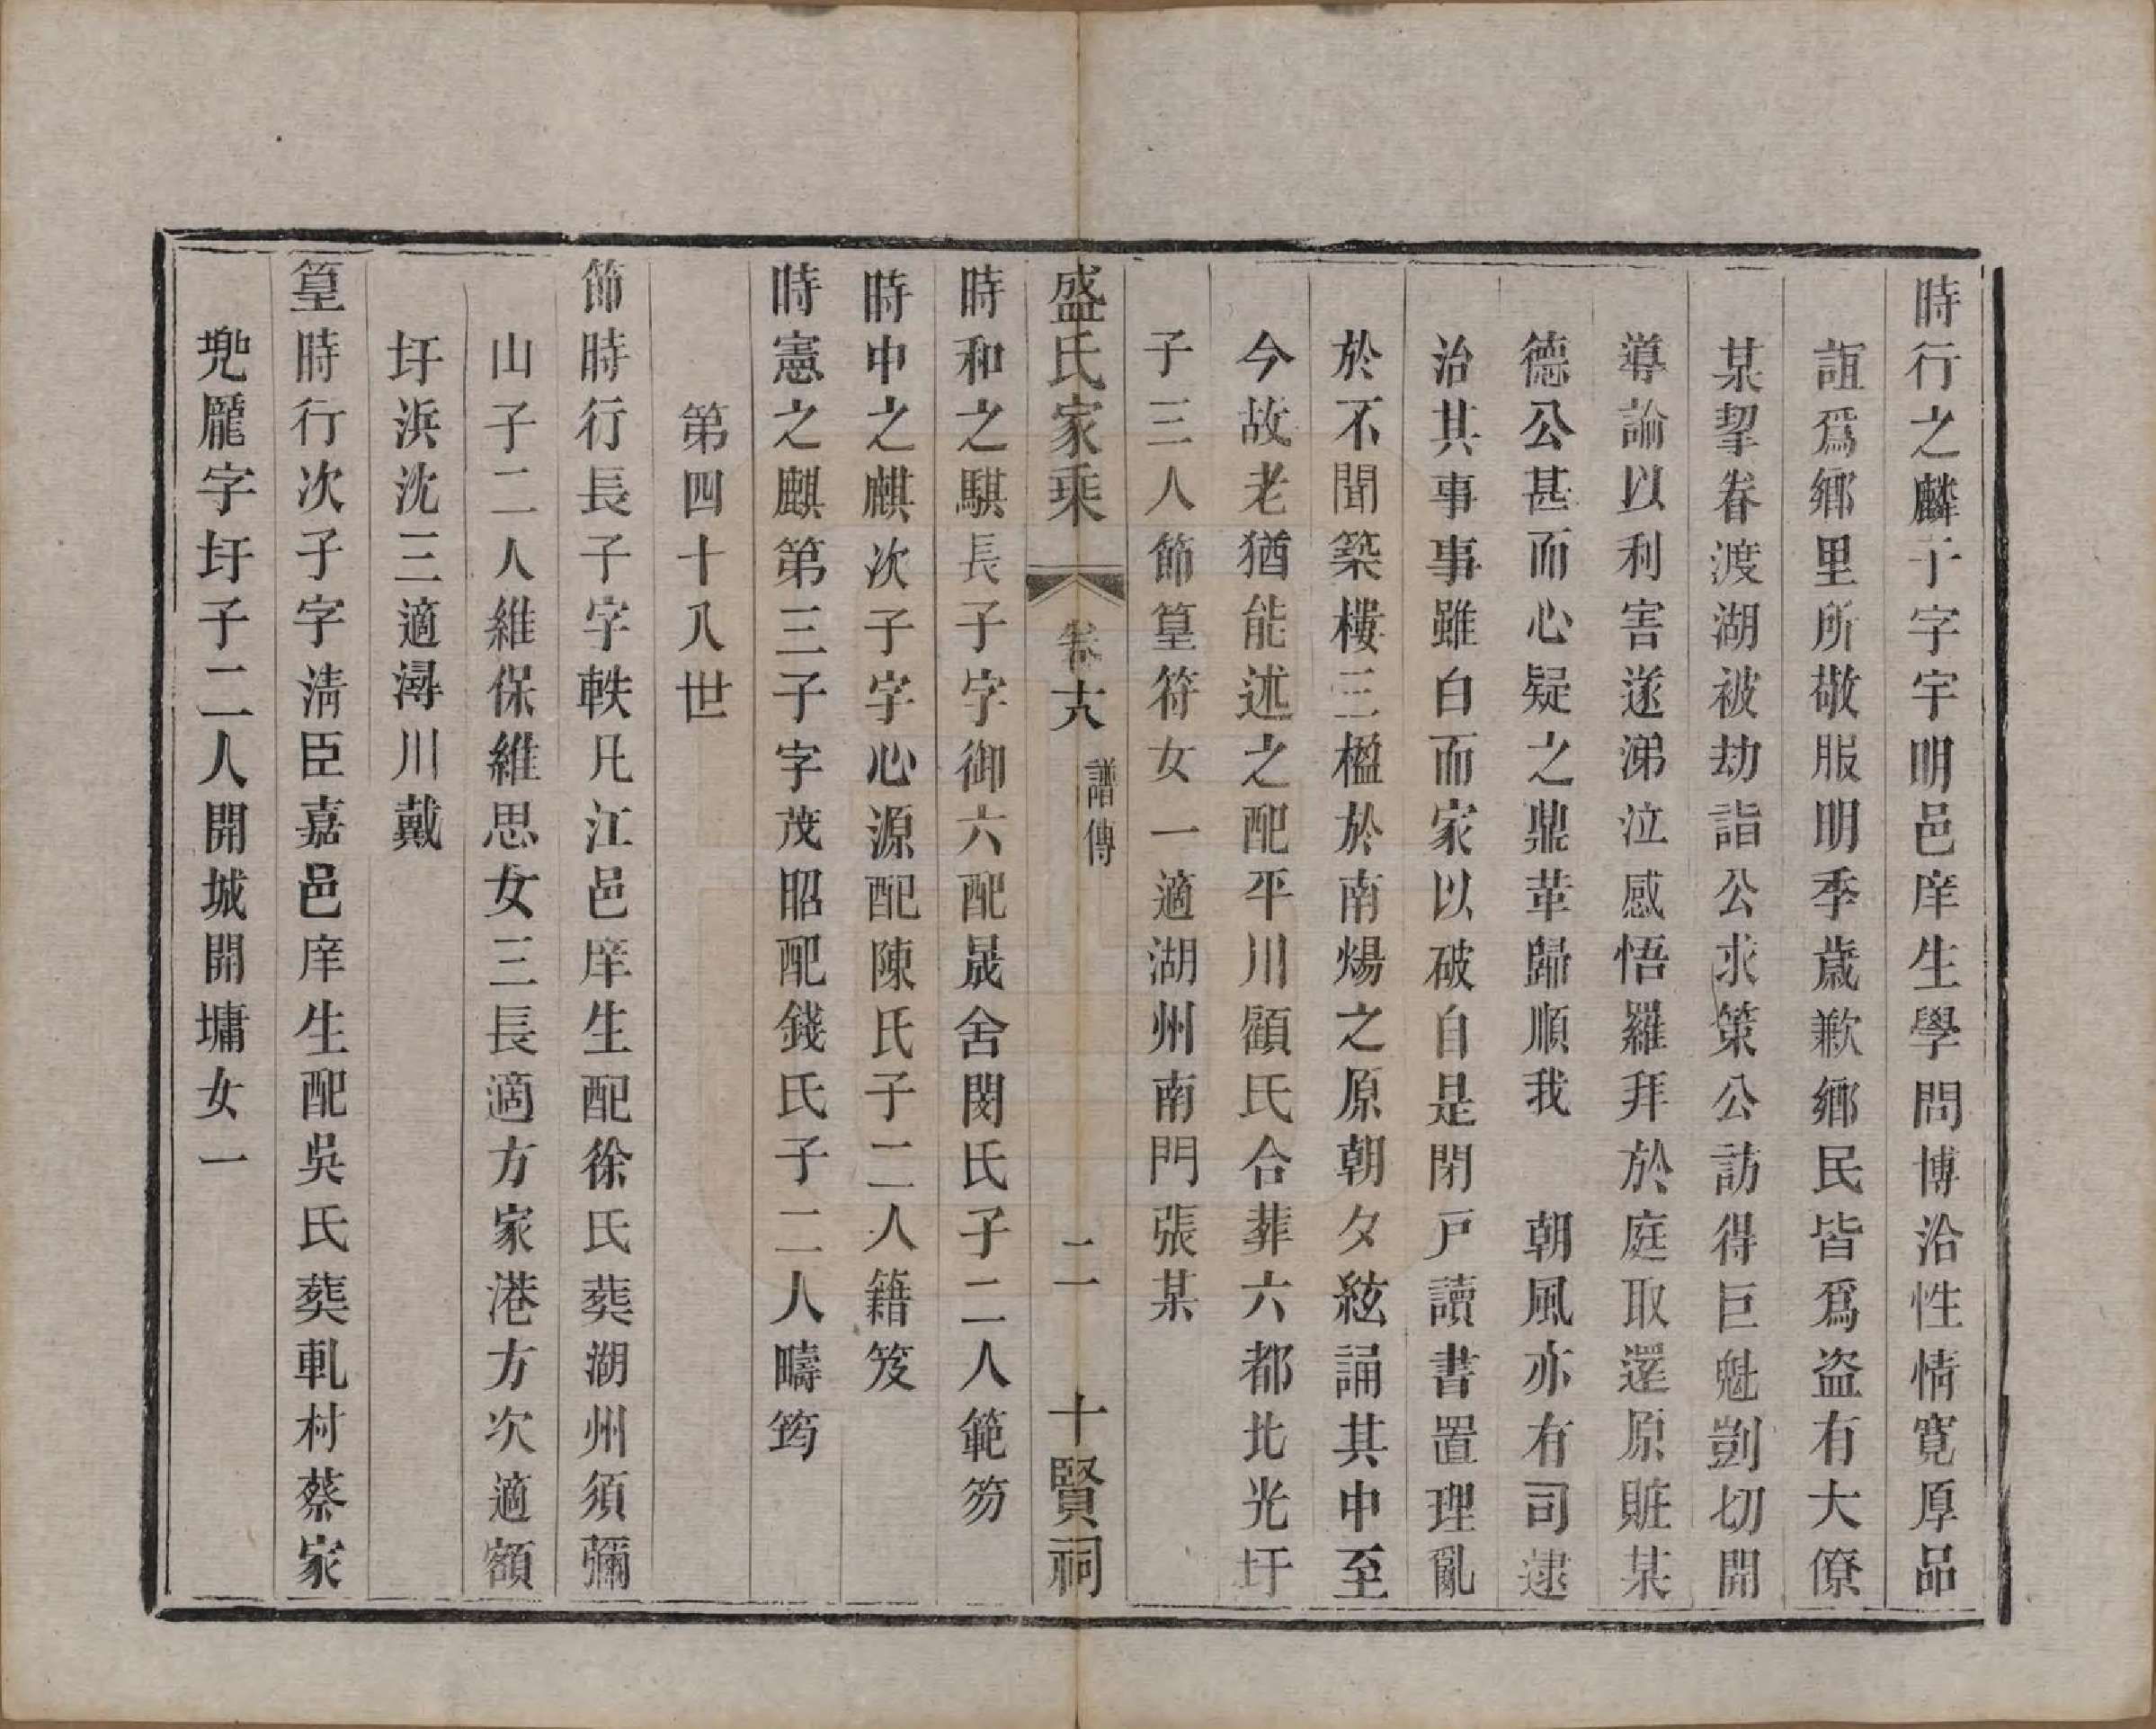 時行之麟子字宇明邑庠生學問博洽性情寬厚品
誼爲鄉里所敬服明季歲歉鄉民皆爲盗有大僚
某挈眷渡湖被劫詣公求策公訪得巨魁剴切開
導諭以利害遂涕泣感悟羅拜於庭取還原賍某
德公甚而心疑之鼎革歸順我　朝風亦有司逮
治其事事雖白而家以破自是閉戸讀書置理亂
於不聞築樓三楹於南煬之原朝夕絃誦其中至
今故老猶能述之配平川顧氏合葬六都北光圩
子三人節篁符女一適湖州南門張某
盛氏家乘　卷六　譜傳　二　十賢祠
時和之騏長子字御六配晟舍閔氏子二人範笏
時中之麒次子字心源配陳氏子二人籍笈
時憲之麒第三子字茂昭配錢氏子二人疇筠
第四十八世
節時行長子字軼凡江邑庠生配徐氏葬湖州須彌
山子二人維保維思女三長適方家港方次適額
圩浜沈三適潯川戴
篁時行次子字淸臣嘉邑庠生配吳氏葬軋村蔡家
兠龎字圩子二人開城開墉女一